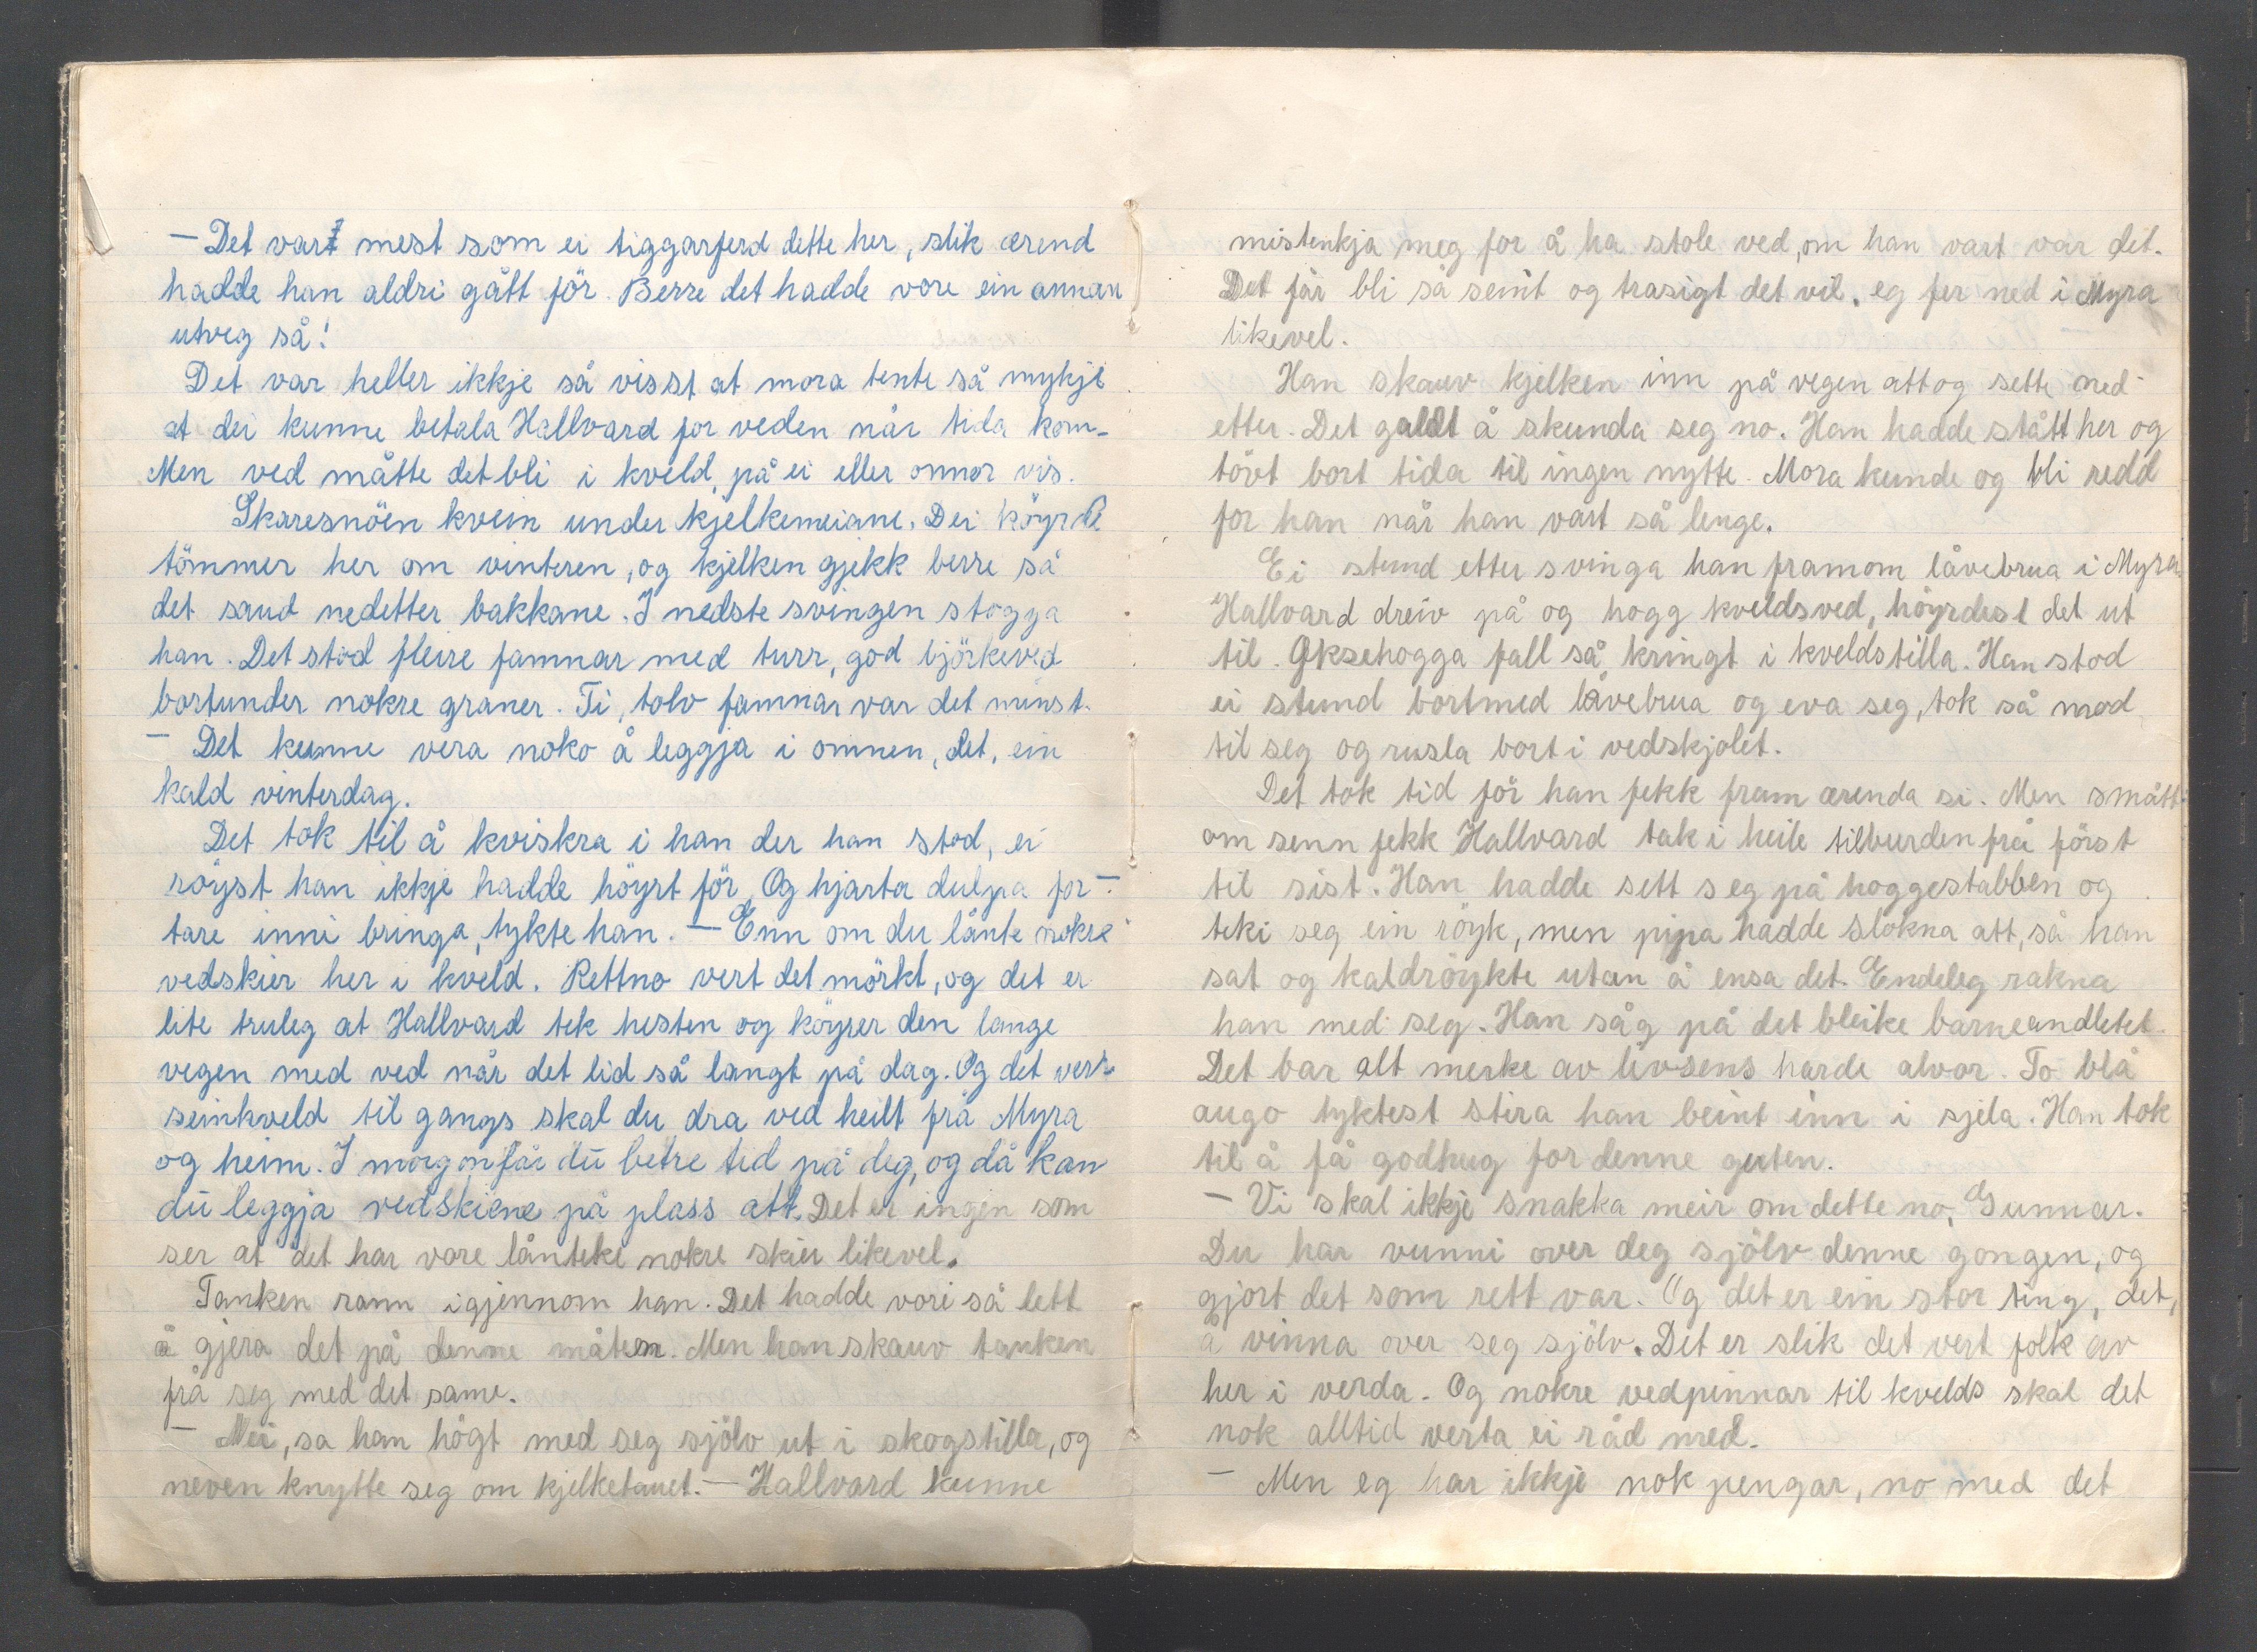 — Det vart mest som ei tiggarferd dette her, slik ærend
hadde han aldri gått för. Berre det hadde vore ein annan
utveg så!
Det var heller ikkje så visst at mora tente så mykje
at dei kunne betala Hallvard for veden når tida kom.
Men ved måtte det bli i kveld, på ei eller onnor vis.
Skaresnöen kvein under kjelkemeiane. Dei köyrde
tömmer her om vinteren, og kjelken gjekk berre så
det saud nedetter bakkane. I nedste svingen stogga
han. Det stod fleire famnar med turr, god björkeved
bortunder nokre graner. Ti, tolv famnar var det minst.
— Det kunne vera noko å leggja i omnen, det, ein
kald vinterdag.
Det tok til å kviskra i han der han stod, ei
röyst han ikkje hadde höyrt för. Og hjarta dulpa for-
tare inni bringa, tykte han. — Enn om du lånte nokre
vedskier her i kveld. Rettno vert det mörkt, og det er
lite truleg at Hallvard tek hesten og köyrer den lange
vegen med ved når det lid så langt på dag. Og det vert
seinkveld til gangs skal du dra ved heilt frå Myra
og heim. I morgon får du betre tid på deg, og då kan
du leggja vedskiene på plass att. Det er ingen som
ser at det har vore lånteke nokre skier likevel.
Tanken rann igjennom han. Det hadde vori så lett
å gjera det på denne måten. Men han skauv tanken
frå seg med det same.
— Nei, sa han högt med seg sjölv ut i skogstilla, og
neven knytte seg om kjelketauet. — Hallvard kunne
mistenkja meg for å ha stole ved, om han vart var det.
Det får bli så seint og trasigt det vil, eg fer ned i Myra
likevel.
Han skauv kjelken inn på vegen att og sette ned-
etter. Det galdt å skunda seg no. Han hadde stått her og
tövt bort tida til ingen nytte. Mora kunde og bli redd
for han når han vart så lenge.
Ei stund etter svinga han framom låvebrua i Myra.
Hallvard dreiv på og hogg kveldsved, höyrdest det ut
til. Øksehogga fall så kringt i kveldstilla. Han stod
ei stund bortmed låvebrua og eva seg, tok så mod
til seg og rusla bort i vedskjolet.
Det tok tid för han fekk fram ærenda si. Men smått
om senn fekk Hallvard tak i heile tilburden frå först
til sist. Han hadde sett seg på hoggestabben og
teki seg ein röyk, men pipa hadde slokna att, så han
sat og kaldröykte utan å ensa det. Endeleg rakna
han med seg. Han såg på det bleike barneandletet.
Det bar alt merke av livsens harde alvor. To blå
augo tyktest stira han beint inn i sjela. Han tok
til å få godhug for denne guten.
— Vi skal ikkje snakka meir om dette no, Gunnar.
Du har vunni over deg sjölv denne gongen, og
gjort det som rett var. Og det er ein stor ting, det,
å vinna over seg sjölv. Det er slik det vert folk av
her i verda. Og nokre vedpinnar til kvelds skal det
nok alltid verta ei råd med.
— Men eg har ikkje nok pengar, no med det